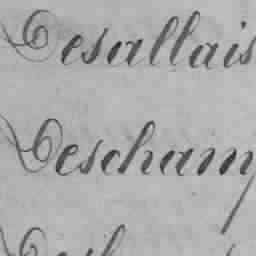 Desallais
Descham